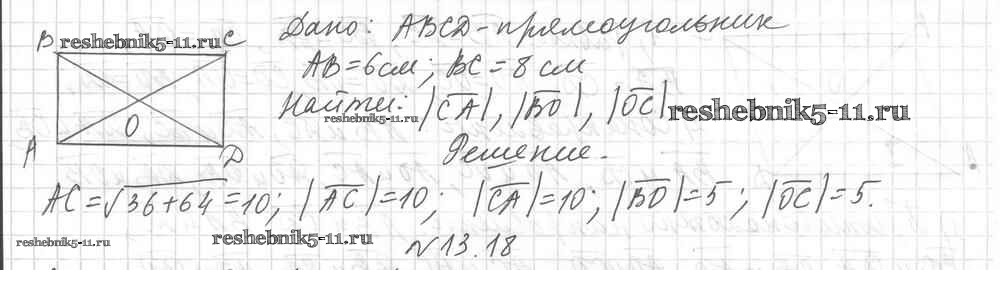 Дано: ABCD - прямоугольник
B reshebnik5-11.ru C
AB = 6 см; BC = 8 см
Найти: |CA|, |BO|, |OC|
reshebnik5-11.ru
reshebnik5-11.ru
O
A
D
Решение.
AC = √36+64 = 10; |AC| = 10; |CA| = 10; |BO| = 5; |OC| = 5.
reshebnik5-11.ru
reshebnik5-11.ru
№13.18